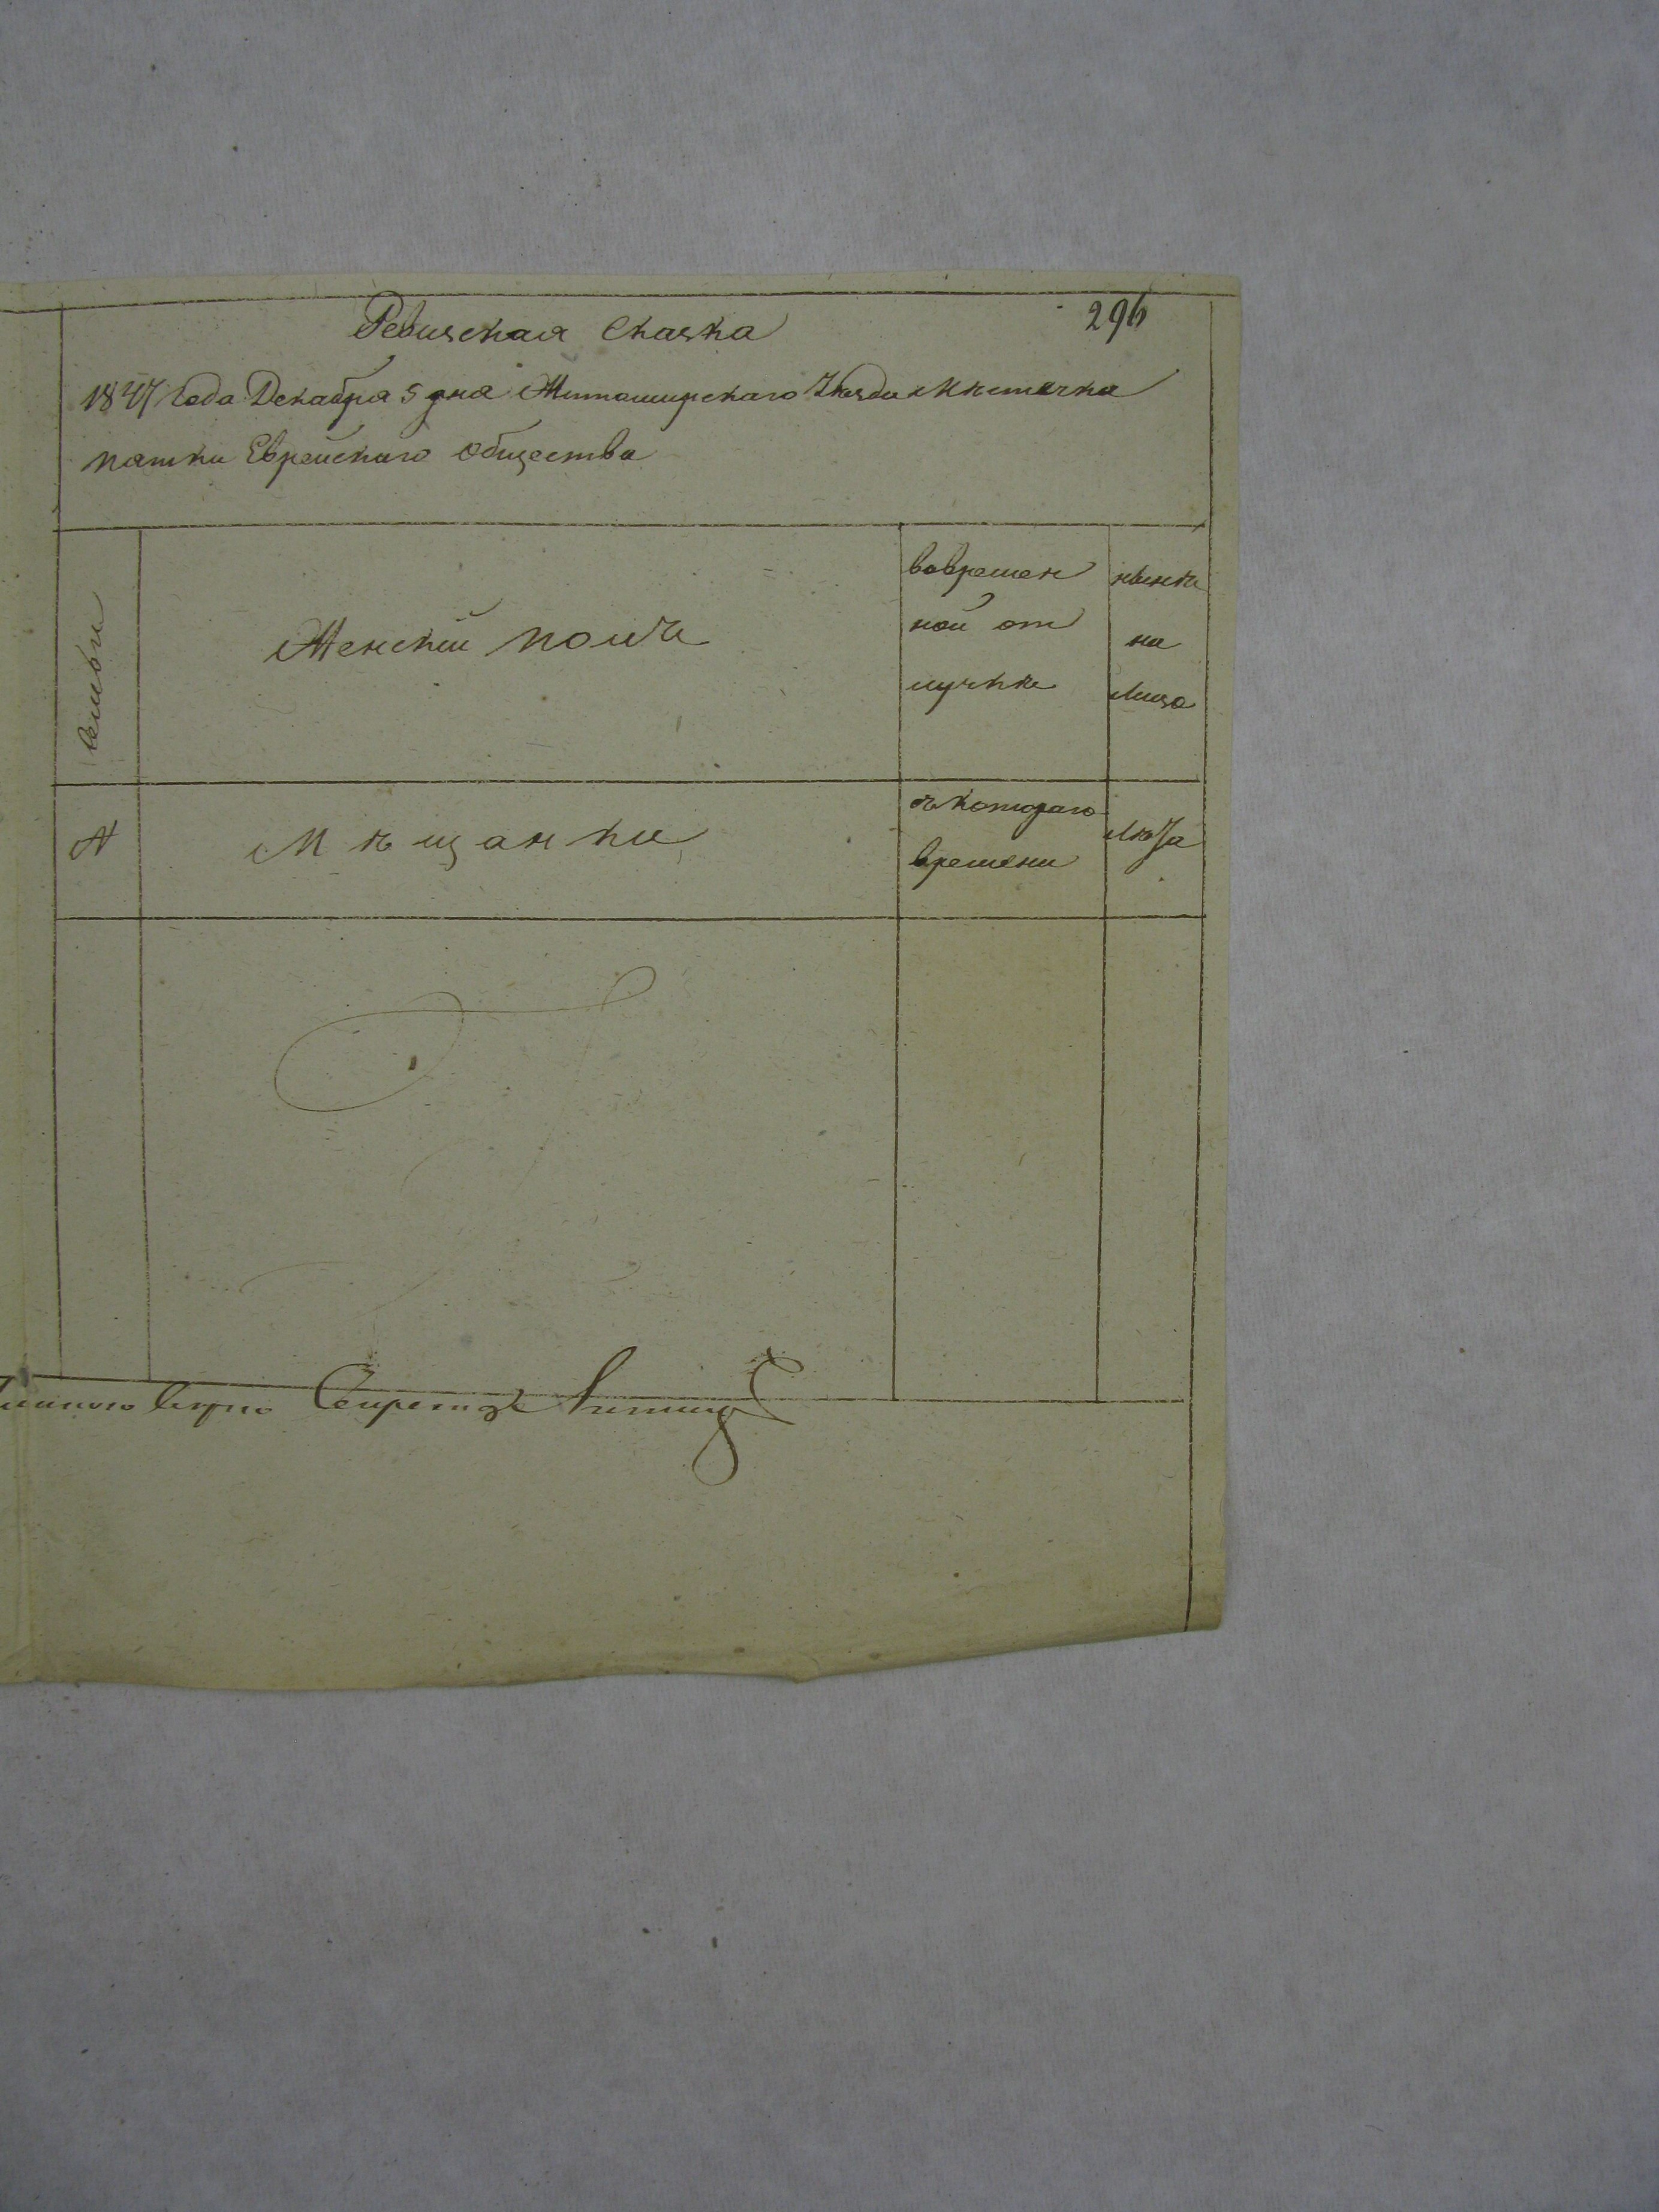 296
Ревизская Сказка
1847 года Декабря 5 дня Житомирскаго Уѣзда Мѣстечка
пятки Еврейскаго общества
Семьи
Женскій полъ
вовремен
ной от
лучкѣ
нынѣ
на
лицо
№
Мѣщанки
съ котораго
времени
Лѣта
верно Секретарь